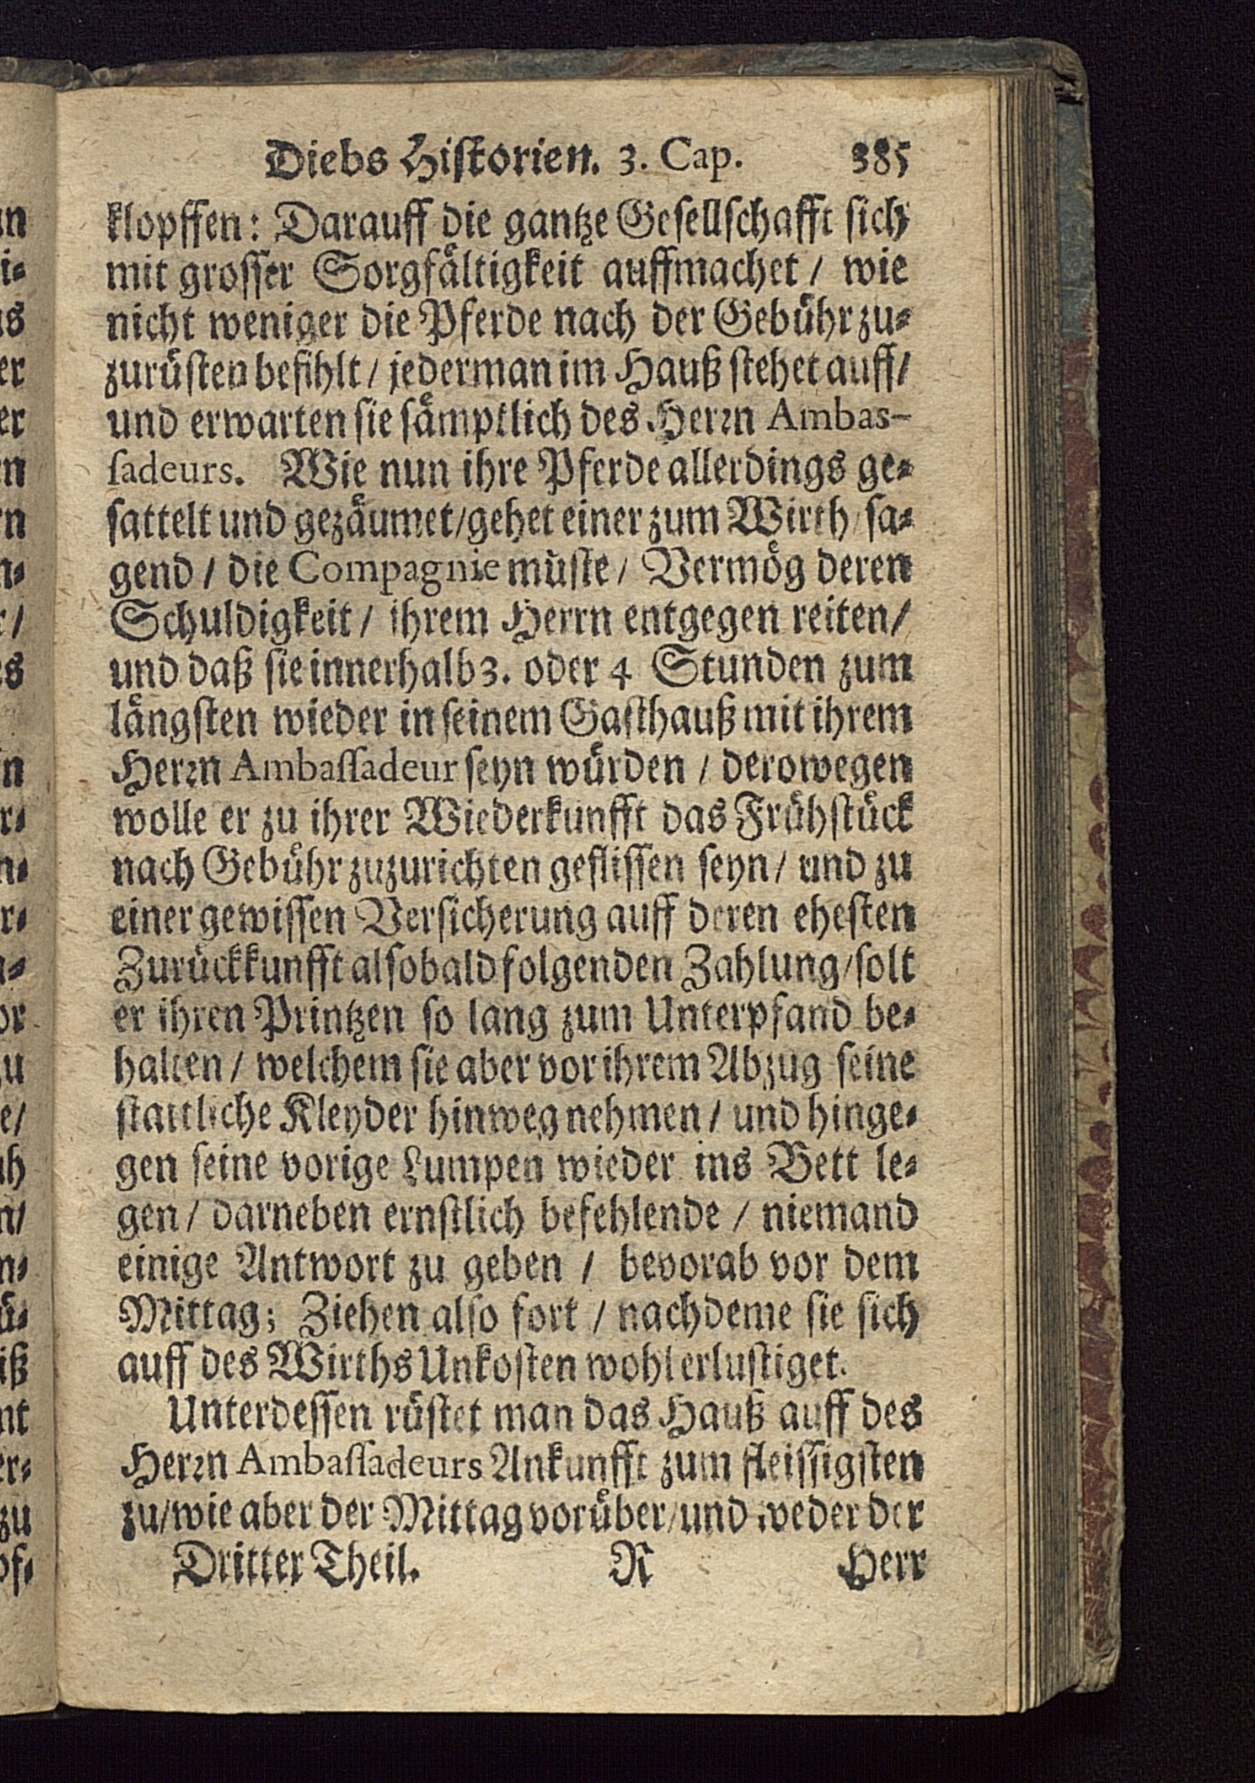 Diebs Historien. 3. Cap. 385
klopffen: Darauff die gantze Gesellschafft sich
mit grosser Sorgfältigkeit auffmachet / wie
nicht weniger die Pferde nach der Gebühr zu-
zurüsten befihlt / jederman im Hauß stehet auff /
und erwarten sie sämptlich des Herrn Ambas-
sadeurs. Wie nun ihre Pferde allerdings ge-
sattelt und gezäumet / gehet einer zum Wirth / sa-
gend / die Compagnie müste / Vermög deren
Schuldigkeit / ihrem Herrn entgegen reiten /
und daß sie innerhalb 3. oder 4 Stunden zum
längsten wieder in seinem Gasthauß mit ihrem
Herrn Ambassadeur seyn würden / derowegen
wolle er zu ihrer Wiederkunfft das Frühstück
nach Gebühr zuzurichten geflissen seyn / und zu
einer gewissen Versicherung auff deren ehesten
Zurückkunfft alsobald folgenden Zahlung / solt
er ihren Printzen so lang zum Unterpfand be-
halten / welchem sie aber vor ihrem Abzug seine
stattliche Kleyder hinweg nehmen / und hinge-
gen seine vorige Lumpen wieder ins Bett le-
gen / darneben ernstlich befehlende / niemand
einige Antwort zu geben / bevorab vor dem
Mittag; Ziehen also fort / nachdeme sie sich
auff des Wirths Unkosten wohl erlustiget.
Unterdessen rüstet man das Hauß auff des
Herrn Ambassadeurs Ankunfft zum fleissigsten
zu / wie aber der Mittag vorüber / und weder der
Dritter Theil. R Herr